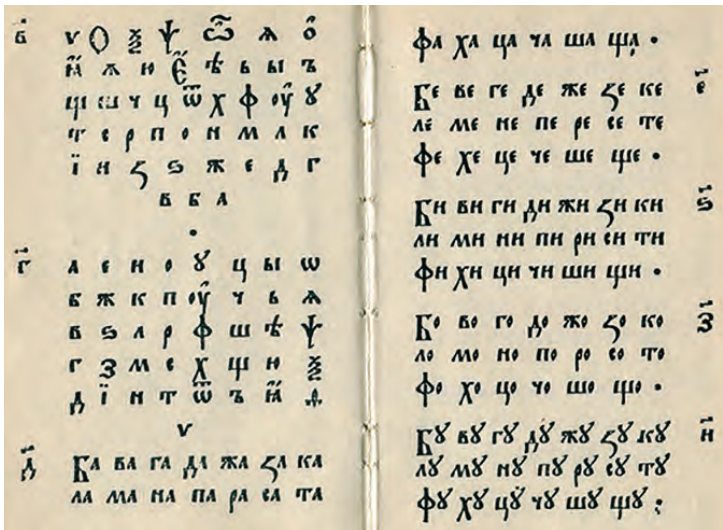 в҃ ѵ Ѻ ѯ ѱ ѽ ѧ о
ꙗ ѫ ю Є ѣ ь ы ъ
щ ш ч ц ѿ х ф оу ꙋ
т с р п о н м л к
ї и ꙁ ѕ ж е д г
в б а
•
г҃ а е и о ꙋ ц ы ѡ
б ж к п оу ч ь ѧ
в ѕ л р ф ш ѣ ѱ
г з м с х щ ю ѯ
д ї н т ѿ ъ ꙗ ѳ
ѵ
д҃ Ба ва га да жа ꙁа ка
ла ма на па ра са та
фа ха ца ча ша ща •
Бе ве ге де же ꙁе ке е҃
ле ме не пе ре се те
фе хе це че ше ще •
Би ви ги ди жи ꙁи ки ѕ҃
ли ми ни пи ри си ти
фи хи ци чи ши щи •
Бо во го до жо ꙁо ко з҃
ло мо но по ро со то
фо хо цо чо шо що •
Бꙋ вꙋ гꙋ дꙋ жꙋ ꙁꙋ кꙋ и҃
лꙋ мꙋ нꙋ пꙋ рꙋ сꙋ тꙋ
фꙋ хꙋ цꙋ чꙋ шꙋ щꙋ ;